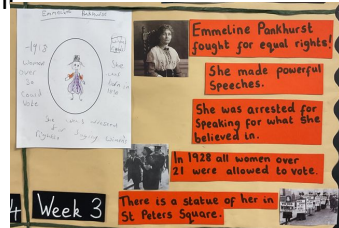 Emmeline Pankhurst
-1918
women
over
30
could
vote
She
was
born in
Emmeline Pankhurst
fought for equal rights!
She made powerful
Speeches.
She was arrested for
Speaking for what she
believed in.
In 1928 all women over
21 were allowed to vote.
There is a statue of her in
St Peters Square.
4
Week 3